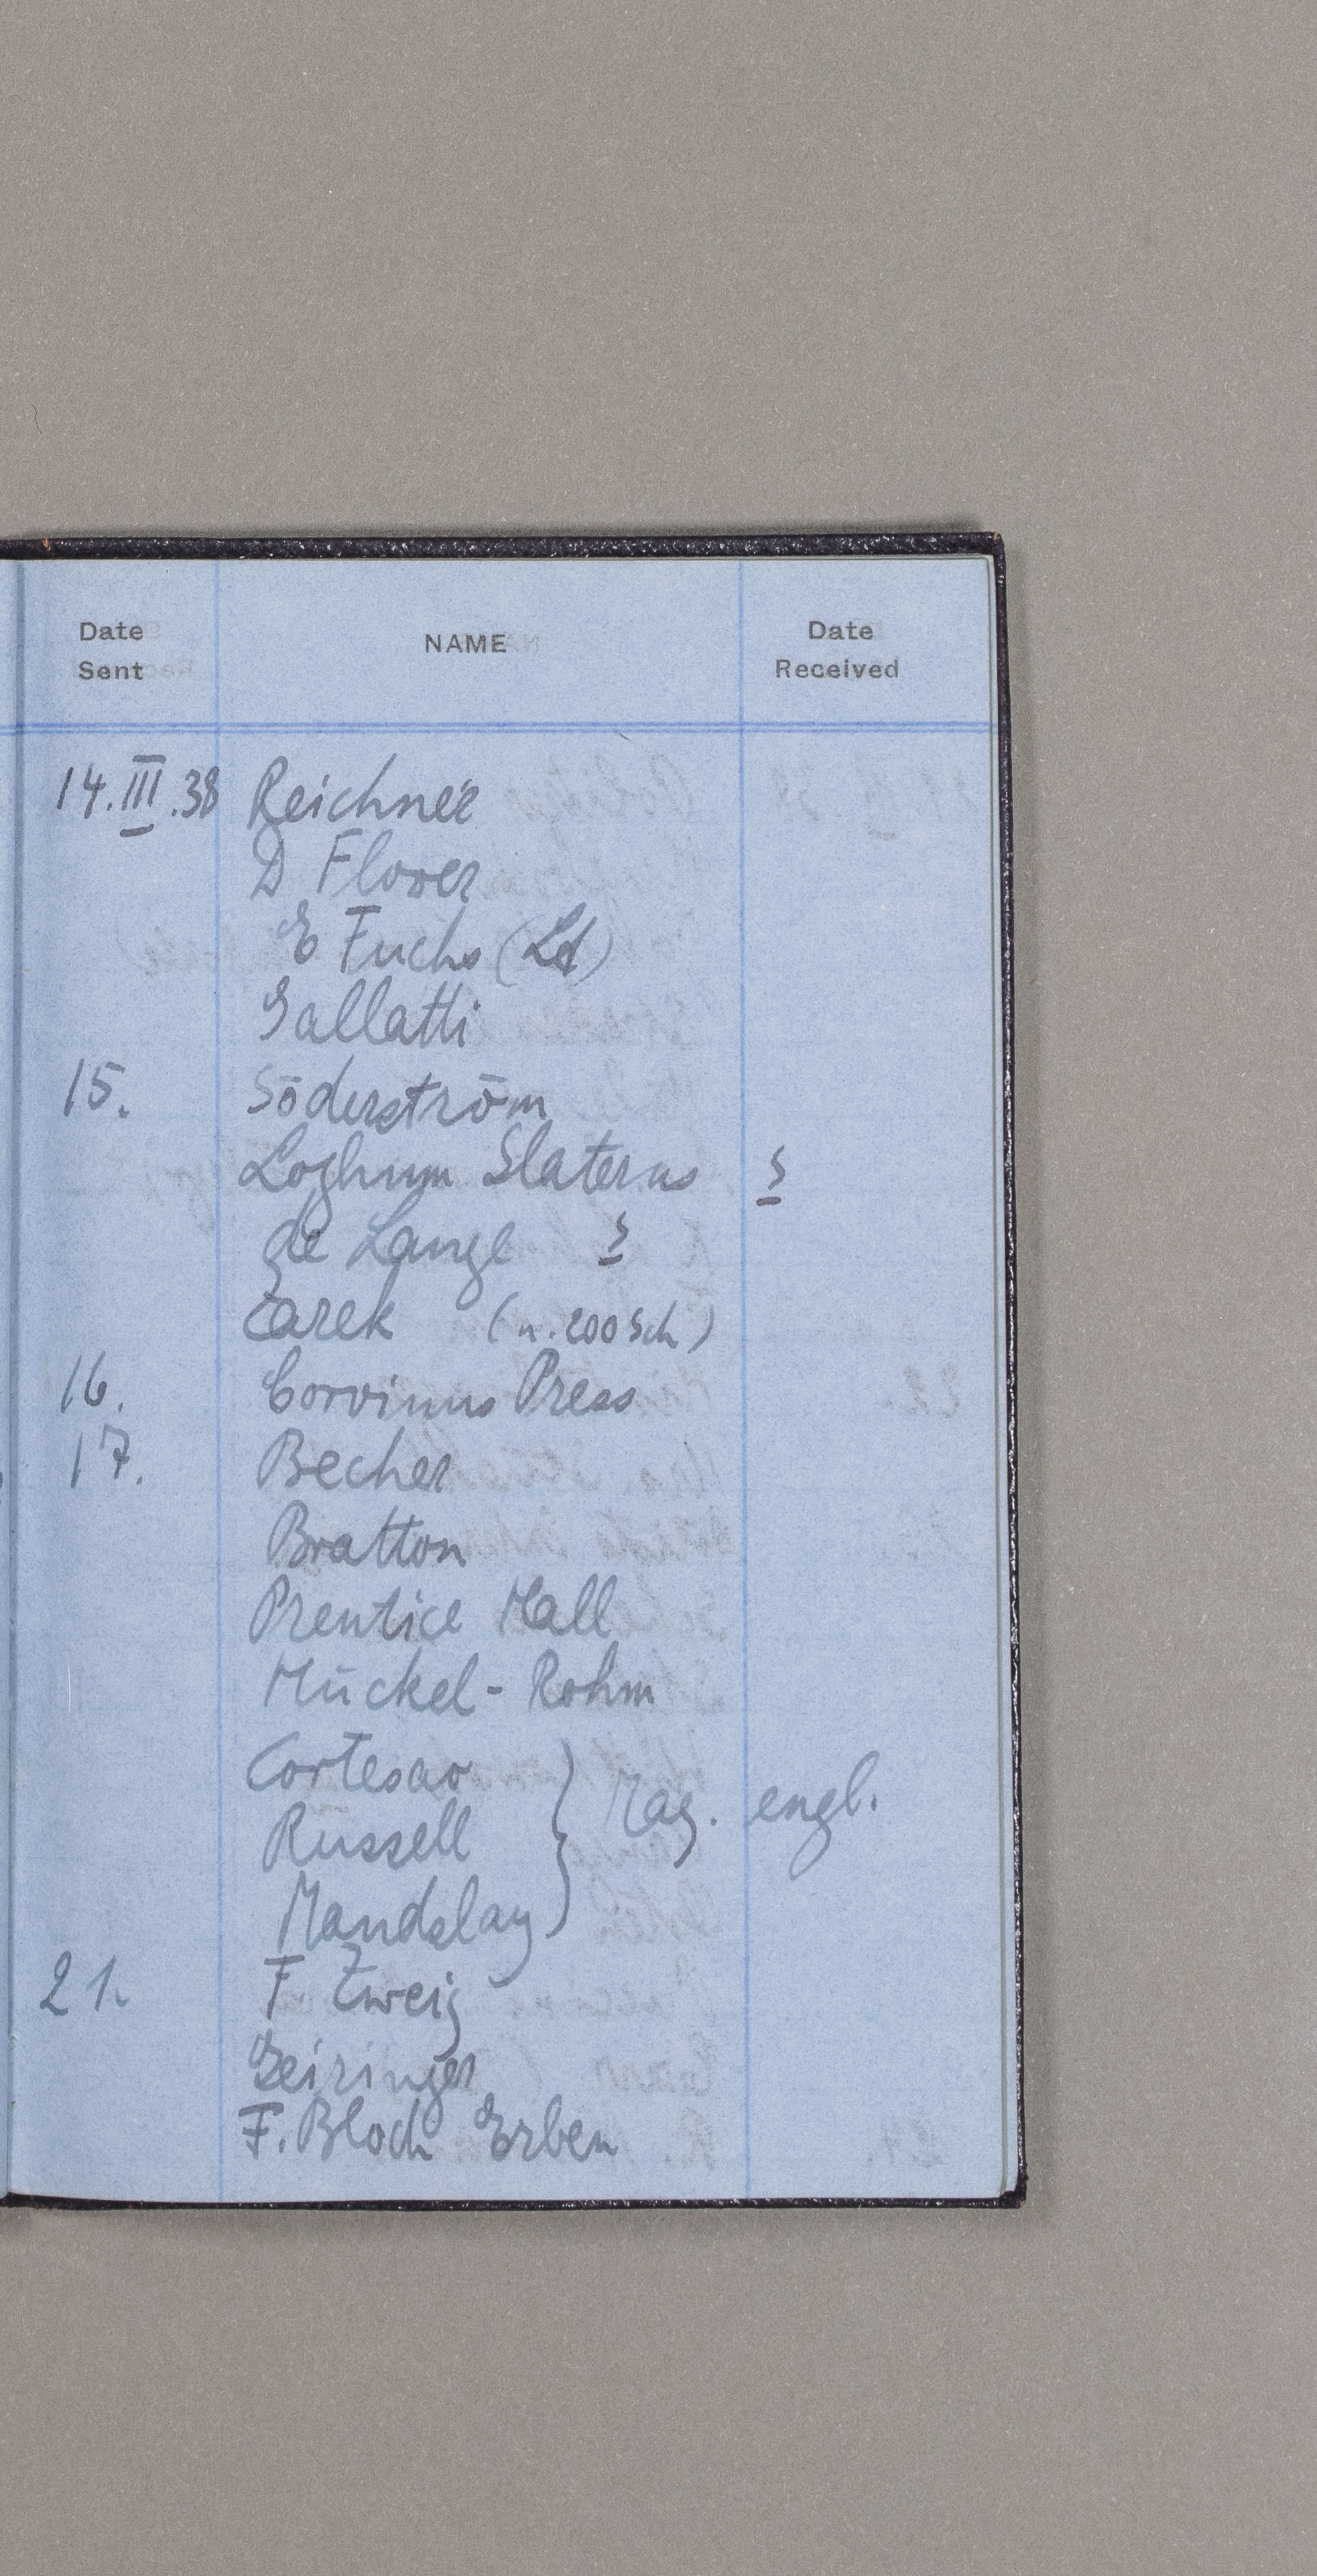 Date Sent NAME Date Received
14.III.38 Reichner
D Flower
E Fuchs (Ld)
Gallatti
15. Söderström
Loghum Slaterus
de Lange
Zarek (n. 200 Sch)
16. Corvinus Press
17. Becher
Bratton
Prentice Hall
Mückel-Rohm
Cortesao
Russell } Mag. engl.
Mandslay
21. F Zweig
Geiringer
F. Bloch Erben